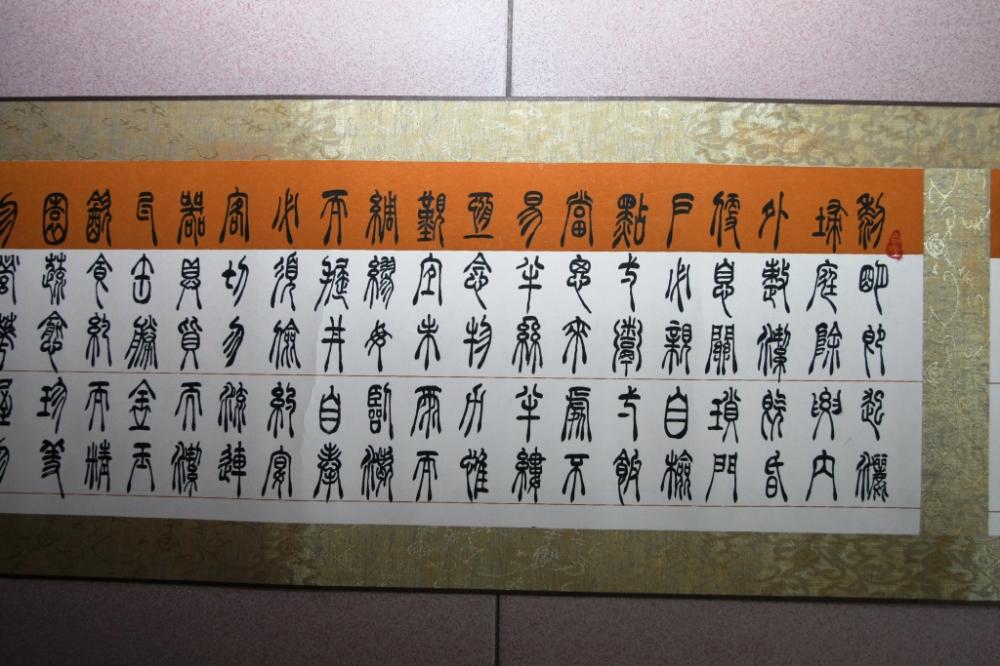 黎明即起灑
埽庭除要內
外整潔既昏
便息關鎖門
戶必親自檢
點弌粥弌飯
當思來處不
易半絲半縷
恆念物力惟
艱宜未雨而
綢繆毋臨渴
而掘井自奉
必須儉約宴
客切勿流連
器具質而潔
瓦缶勝金玉
飲食約而精
園蔬愈珍羞
勿營華屋勿